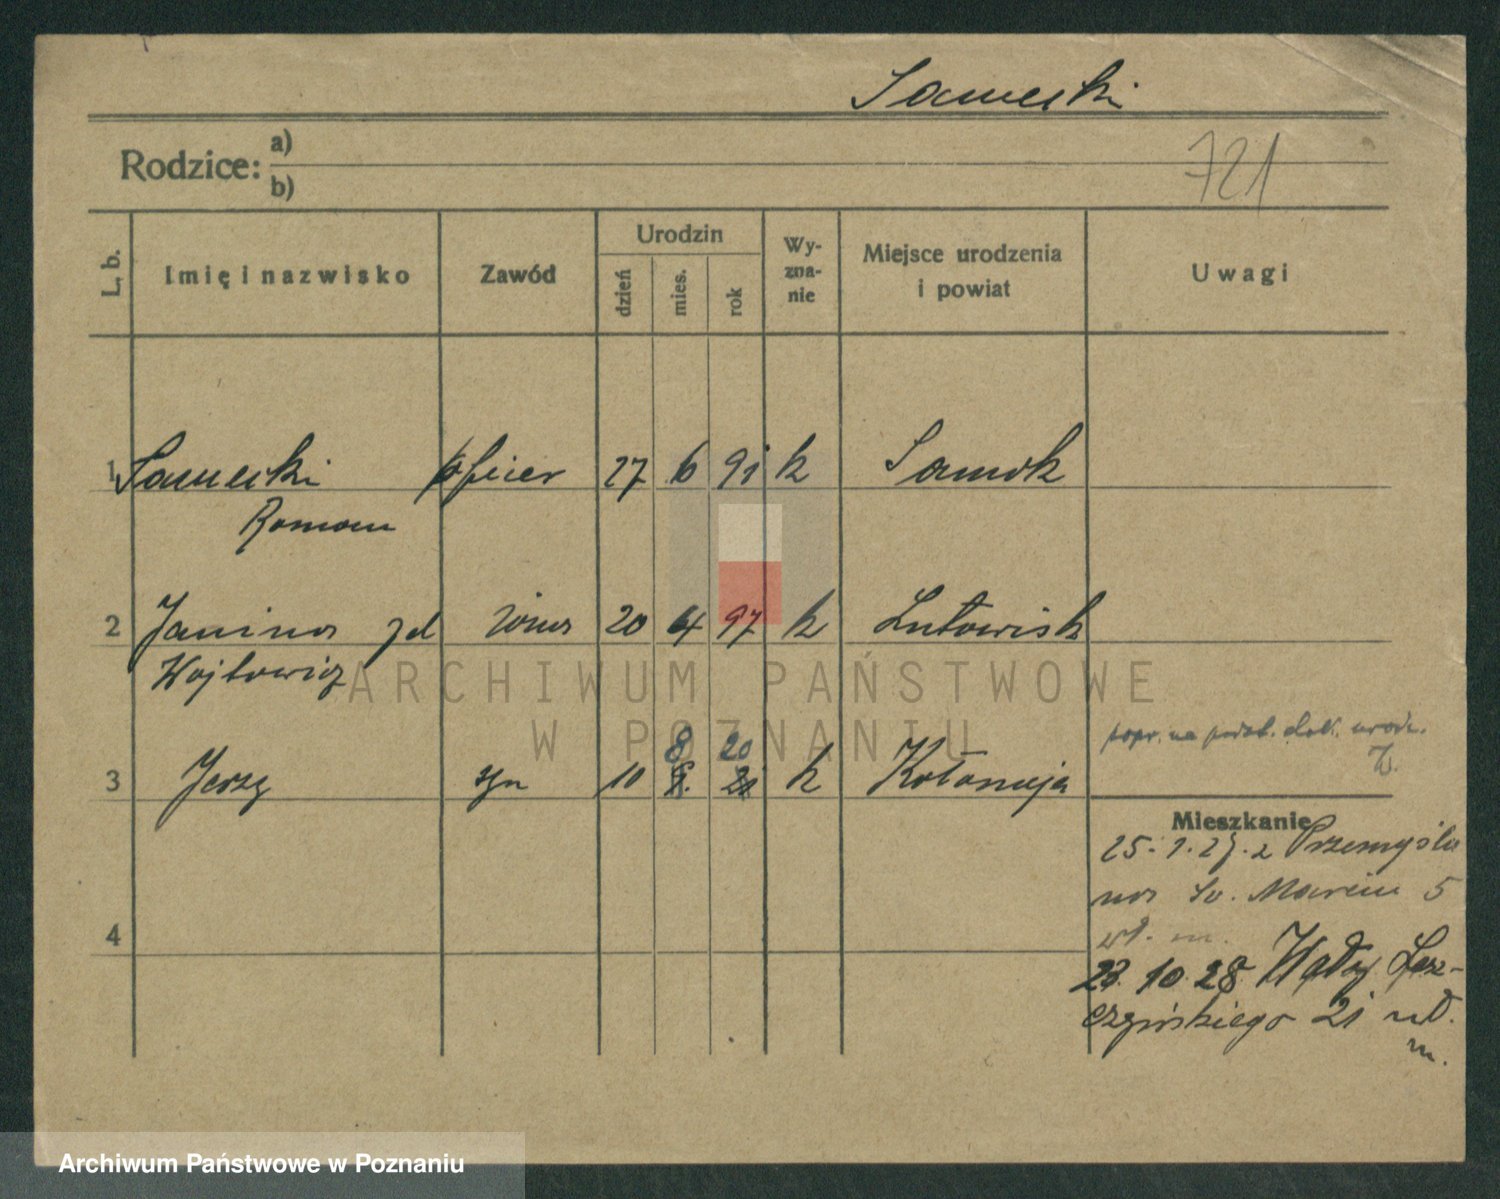 Sanecki
721
Rodzice: a)
b)
L. b.
Imię i nazwisko
Zawód
Urodzin
dzień
mies.
rok
Wy-
zna-
nie
Miejsce urodzenia
i powiat
Uwagi
1 Sanecki oficer 27 6 91 k Sanok
Roman
2 Janina zd żona 20 4 97 k Lutowisk
Wojtowicz
popr. na podst. dok. urodz.
8 20
3 Jerzy syn 10 k Kołomyja
Mieszkanie
25. 1. 27. z Przemyśla
na Św. Marcin 5
wł. m.
23. 10. 28. Wały Lesz-
czyńskiego 21 wł.
m.
4
ARCHIWUM PAŃSTWOWE
W POZNANIU
Archiwum Państwowe w Poznaniu